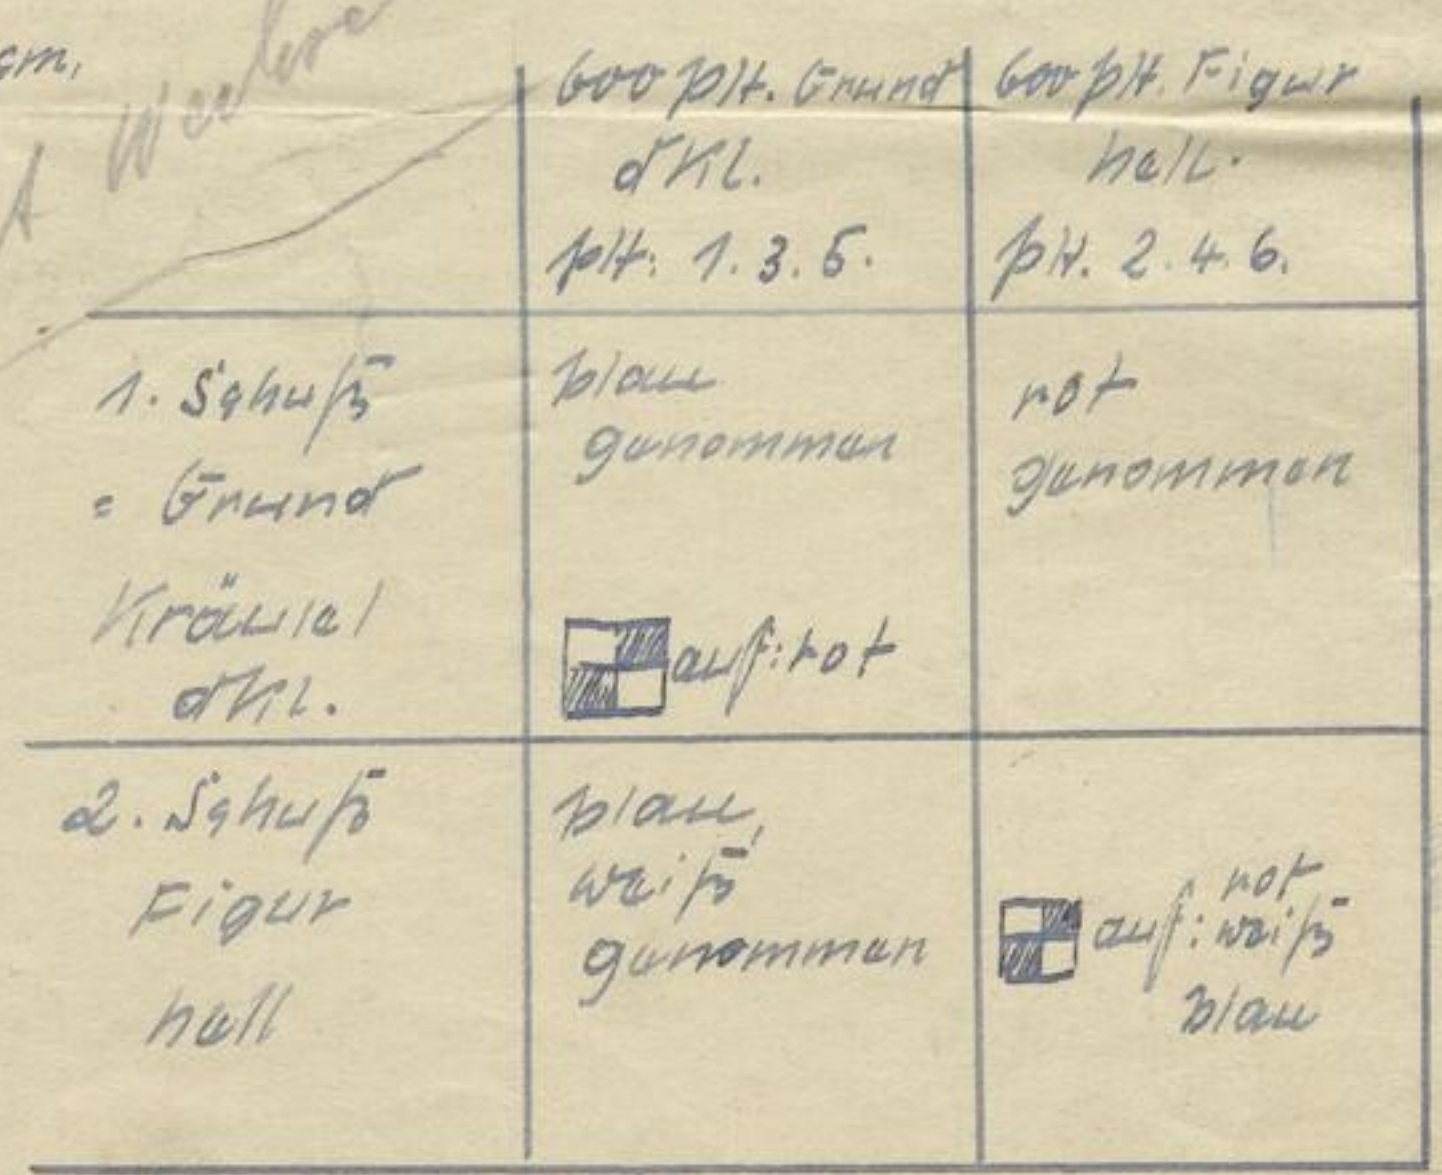 cm,
600 plt. Grund
dkl.
plt. 1. 3. 5.
600 plt. Figur
hell.
plt. 2. 4. 6.
1. Schuß
= Grund
Kräusel
dkl.
blau
genommen
auf: rot
rot
genommen
2. Schuß
Figur
hell
blau,
weiß
genommen
rot
auf: weiß
blau